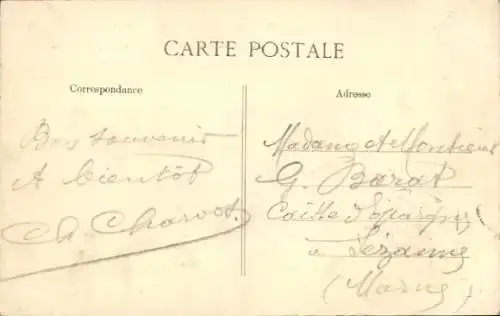 CARTE POSTALE
Correspondance
Bon souvenir
A bientôt
Ch. Charvot.
Adresse
Madame et Monsieur
G. Barat
Caisse d'Epargne
à Sézanne
(Marne)